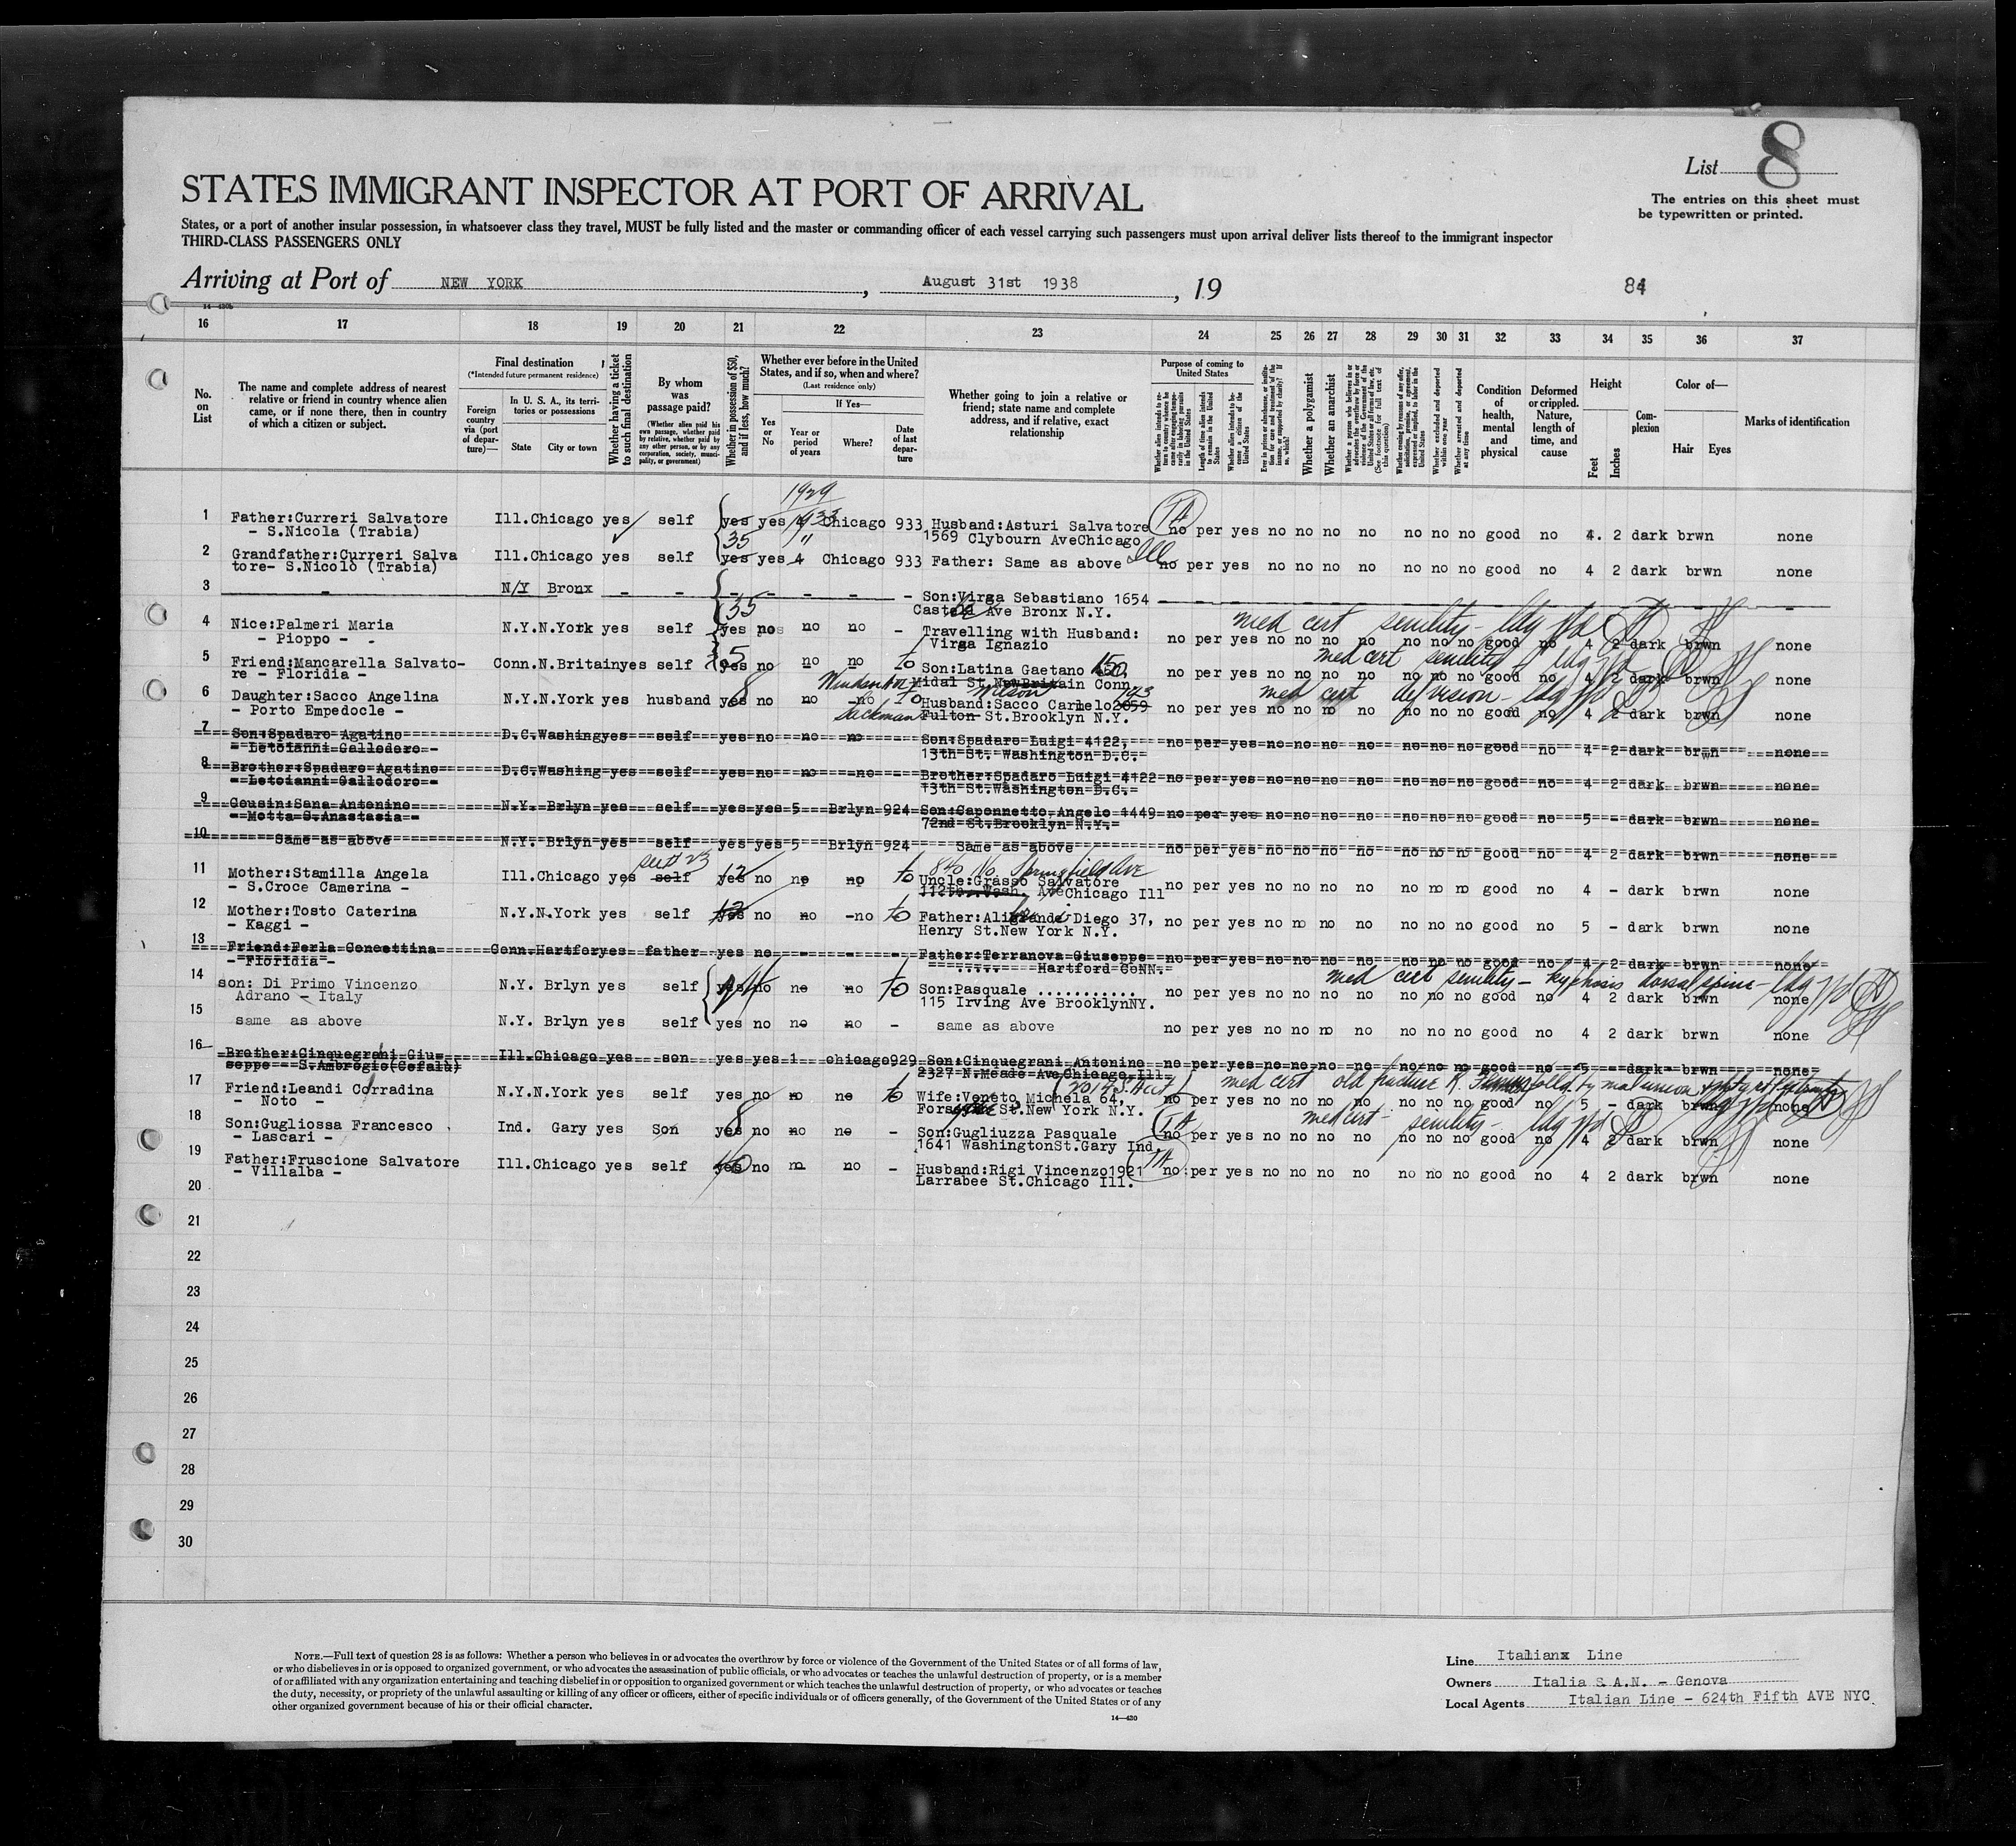 List 8
The entries on this sheet must
be typewritten or printed.
STATES IMMIGRANT INSPECTOR AT PORT OF ARRIVAL
States, or a port of another insular possession, in whatsoever class they travel, MUST be fully listed and the master or commanding officer of each vessel carrying such passengers must upon arrival deliver lists thereof to the immigrant inspector
THIRD-CLASS PASSENGERS ONLY
Arriving at Port of NEW YORK, August 31st 1938, 19
84
16 17 18 19 20 21 22 23 24 25 26 27 28 29 30 31 32 33 34 35 36 37
No. on List
The name and complete address of nearest relative or friend in country whence alien came, or if none there, then in country of which a citizen or subject.
Final destination
(*Intended future permanent residence)
Foreign country via (port of departure)—
In U. S. A., its territories or possessions
State City or town
Whether having a ticket to such final destination
By whom was passage paid?
(Whether alien paid his own passage, whether paid by relative, whether paid by any other person, or by any corporation, society, municipality, or government)
Whether in possession of $50, and if less, how much?
Whether ever before in the United States, and if so, when and where?
(Last residence only)
Yes or No
If Yes—
Year or period of years
Where?
Date of last departure
Whether going to join a relative or friend; state name and complete address, and if relative, exact relationship
Purpose of coming to United States
Whether a polygamist
Whether an anarchist
Condition of health, mental and physical
Deformed or crippled. Nature, length of time, and cause
Height
Feet Inches
Complexion
Color of—
Hair Eyes
Marks of identification
1929
1 Father:Curreri Salvatore Ill.Chicago yes self yes yes 4 Chicago 933 Husband:Asturi Salvatore no per yes no no no no no no no good no 4. 2 dark brwn none
- S.Nicola (Trabia) 35 1569 Clybourn AveChicago Ill
2 Grandfather:Curreri Salva Ill.Chicago yes self yes yes 4 Chicago 933 Father: Same as above no per yes no no no no no no no good no 4 2 dark brwn none
tore- S.Nicolò (Trabia)
3 - N/Y Bronx - - - - - - - Son:Virga Sebastiano 1654
35 Castle Ave Bronx N.Y.
med cert senility - ldg
4 Nice:Palmeri Maria N.Y.N.York yes self yes no no no - Travelling with Husband: no per yes no no no no no no no good no 4 2 dark brwn none
- Pioppo - - Virga Ignazio
med cert senility ldg
5 Friend:Mancarella Salvato- Conn.N.Britainyes self yes no no no to Son:Latina Gaetano 150, no per yes no no no no no no no good no 4 2 dark brwn none
re - Floridia - Midal St.NewBritain Conn
med cert def vision - ldg
6 Daughter:Sacco Angelina N.Y.N.York yes husband yes 8 no no no to Husband:Sacco Carmelo2059 no per yes no no no no no no no good no 4 2 dark brwn none
- Porto Empedocle - Sackman Fulton St.Brooklyn N.Y.
7 Son:Spadaro Agatino D.C.Washingyes self yes no no no Son:Spadaro Luigi 4122, no per yes no no no no no no no good no 4 2 dark brwn none
- Letoianni Gallodoro - 13th St. Washington D.C.
8 Brother:Spadaro Agatino D.C.Washing yes self yes no no no Brother:Spadaro Luigi 4122 no per yes no no no no no no no good no 4 2 dark brwn none
- Letoianni Gallodoro - 13th St.Washington D.C.
9 Cousin:Sana Antonino N.Y. Brlyn yes self yes yes 5 Brlyn 924 Son:Caponnetto Angelo 1449 no per yes no no no no no no no good no 5 - dark brwn none
- Motta S.Anastasia - 72nd St.Brooklyn N.Y.
10 Same as above N.Y. Brlyn yes self yes yes 5 Brlyn 924 Same as above no per yes no no no no no no n good no 4 2 dark brwn none
840 No. Springfield Ave
11 Mother:Stamilla Angela Ill.Chicago yes self yes 12 no no no to Uncle:Grasso Salvatore no per yes no no no no no no no good no 4 - dark brwn none
- S.Croce Camerina - 112th. Wash. AveChicago Ill
12 Mother:Tosto Caterina N.Y.N.York yes self yes 12 no no -no to Father:Aligrande Diego 37, no per yes no no no no no no no good no 5 - dark brwn none
- Kaggi - Henry St.New York N.Y.
13 Friend:Ferla Concettina Conn.Hartforyes father yes no - - - Father:Terranova Giuseppe no per yes no no no no no no no good no 4 2 dark brwn none
- Floridia - ..... Hartford CoNN.
med cert senility - kyphosis dorsal spine - ldg
14 son: Di Primo Vincenzo N.Y. Brlyn yes self yes no no no to Son:Pasquale ........... no per yes no no no no no no no good no 4 2 dark brwn none
Adrano - Italy 115 Irving Ave BrooklynNY.
15 same as above N.Y. Brlyn yes self yes no no no - same as above no per yes no no no no no no no good no 4 2 dark brwn none
16 Brother:Cinquegrani Giu- Ill.Chicago yes son yes yes 1 chicago929 Son:Cinquegrani Antonino no per yes no no no no no no no good no 5 - dark brwn none
seppe - S.Ambrogio(Cefalù) 2327 N.Meade Ave Chicago Ill
med cert old fracture R.
17 Friend:Leandi Corradina N.Y.N.York yes self yes no no no to Wife:Veneto Michela 64, no per yes no no no no no no no good no 5 - dark brwn none
- Noto - Forsythe St.New York N.Y.
med cert - senility - ldg
18 Son:Gugliossa Francesco Ind. Gary yes Son yes 8 no no no - Son:Gugliuzza Pasquale no per yes no no no no no no no good no 4 2 dark brwn none
- Lascari - 1641 WashingtonSt.Gary Ind.
19 Father:Fruscione Salvatore Ill.Chicago yes self yes no no no - Husband:Rigi Vincenzo1921 no per yes no no no no no no no good no 4 2 dark brwn none
- Villalba - Larrabee St.Chicago Ill.
20
21
22
23
24
25
26
27
28
29
30
NOTE.—Full text of question 28 is as follows: Whether a person who believes in or advocates the overthrow by force or violence of the Government of the United States or of all forms of law,
or who disbelieves in or is opposed to organized government, or who advocates the assassination of public officials, or who advocates or teaches the unlawful destruction of property, or is a member
of or affiliated with any organization entertaining and teaching disbelief in or opposition to organized government or which teaches the unlawful destruction of property, or who advocates or teaches
the duty, necessity, or propriety of the unlawful assaulting or killing of any officer or officers, either of specific individuals or of officers generally, of the Government of the United States or of any
other organized government because of his or their official character.
14—430
Line Italianx Line
Owners Italia S.A.N. - Genova
Local Agents Italian Line - 624th Fifth AVE NYC